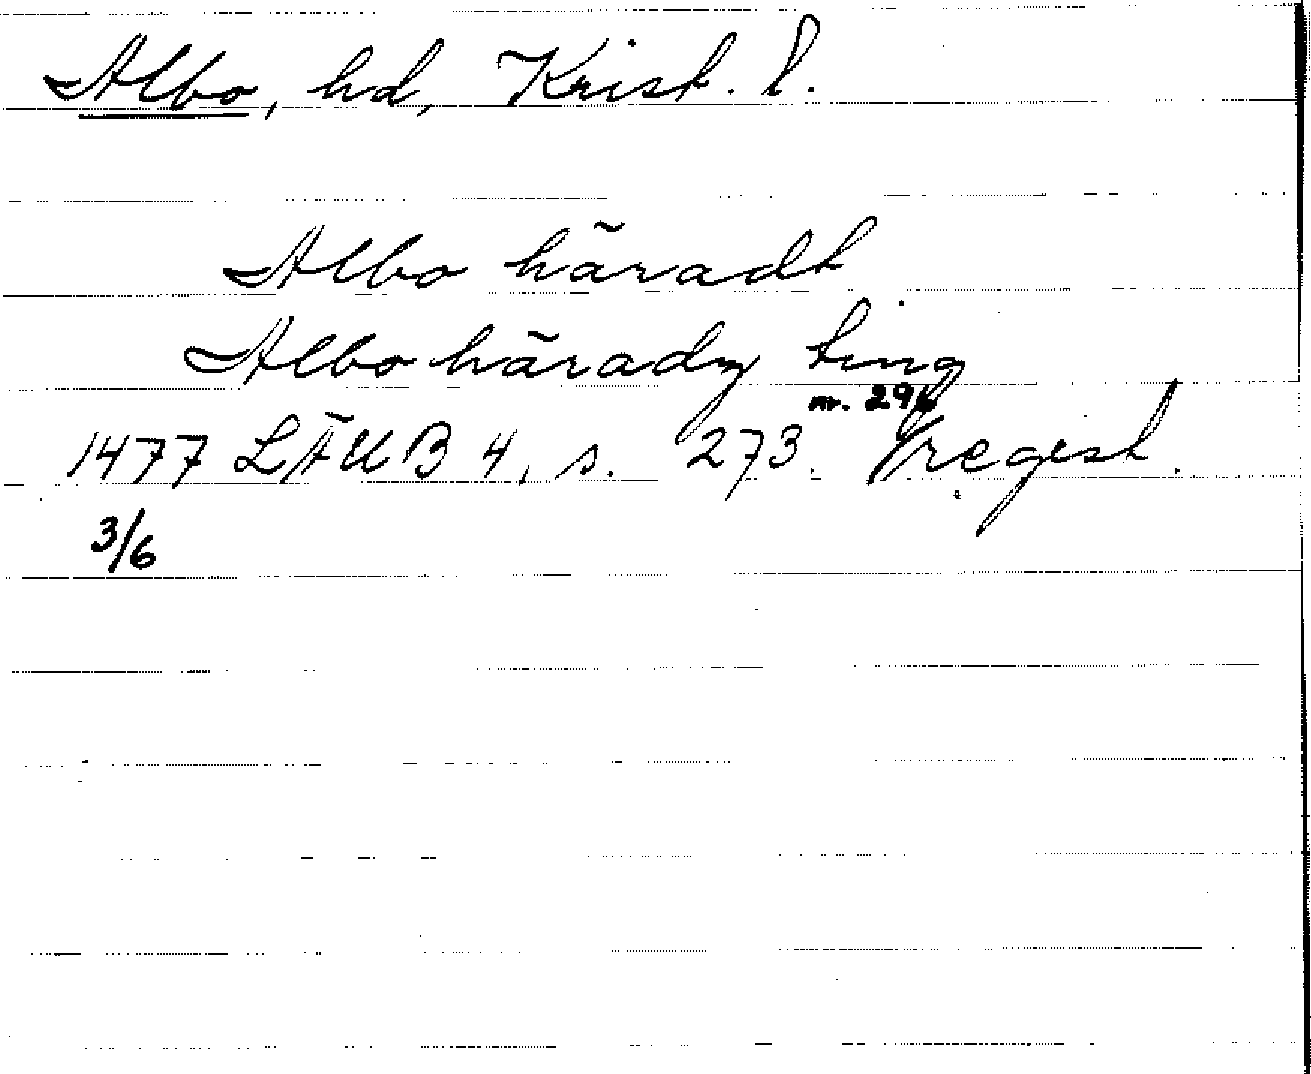 Albo, hd, Krist. l.
Albo häradt
Albo häradz ting
nr. 296
1477 LÄUB 4, s. 273. regest.
3/6